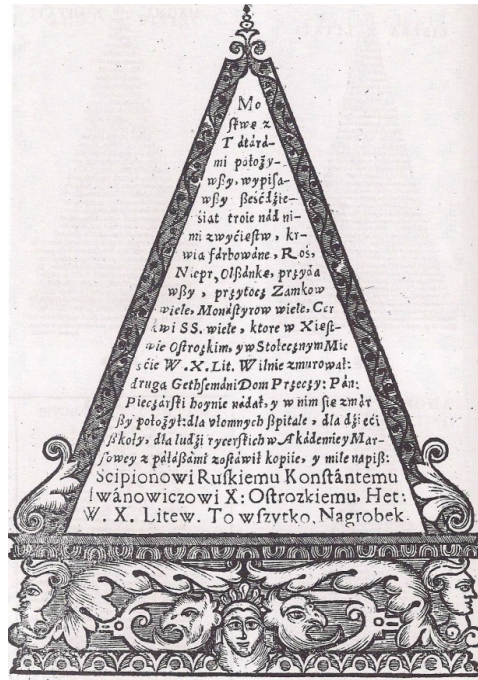 Mo
ſkwę z
Tátárá-
mi położy-
wßy, wypiſa-
wßy ßeśćdźie-
śiat troie nád ni-
mi zwyćięſtw, kr-
wią fárbowáne, Roś,
Niepr, Olßánkę, przydá
wßy, przytocż Zamkow
wiele, Monáſtyrow wiele, Cer
kwi SS. wiele, ktore w Xięſt-
wie Oſtrozkim, y w Stołecżnym Mie
śćie W. X. Lit. Wilnie zmurował:
druga Gethſemáni Dom Przecży: Pán:
Piecżárſki hoynie nádał, y w nim ſię zmár
ßy położył: dla ułomnych ßpitale, dla dźieći
ßkoły, dla ludźi rycerſkich w Akádemiey Mar-
ſowey z páłáßámi zoſtáwił kopiie, y mile napiß:
Scipionowi Ruſkiemu Konſtántemu
Iwánowiczowi X: Oſtrozkiemu, Het:
W. X. Litew. To wſzytko, Nagrobek.